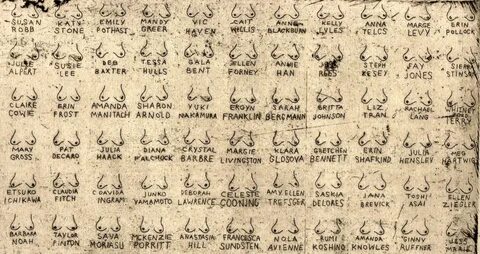 SUSAN KATE EMILY MANDY VIC CAIT ANNE KELLY ANNA MARGE ERIN
ROBB STONE POTHAST GREER HAVEN WILLIS BLACKBURN LYLES TELCS LEVY POLLOCK
JULIE SUSIE DEB TESSA GALA ELLEN ANNIE STEPH FAY SIERRA
ALPERT LEE BAXTER HULLS BENT FORNEY HAN REES KESEY JONES STINSON
CLAIRE ERIN AMANDA SHARON YUKI ERGYN SARAH BRITTA LIZ RACHAEL WHITNEY
COWIE FROST MANITACH ARNOLD NAKAMURA FRANKLIN BERGMANN JOHNSON TRAN LANG TERRY
MARY PAT JULIA DIANA CRYSTAL MARGIE KLARA GRETCHEN ERIN JULIA MEG
GROSS DECARO HAACK BARBRE LIVINGSTON GLOSOVA BENNETT SHAFKIND HENSLEY HARTWIG
ETSUKO CLAUDIA C DAVIDA JUNKO DEBORAH CELESTE AMY ELLEN SASKIA JANA TOSHI ELLEN
ICHIKAWA FITCH INGRAM YAMAMOTO LAWRENCE COONING TREFSGER DELORES BREVICK ASAI ZIEGLER
BARBARA TAYLOR MCKENZIE ANASTASIA FRANCESCA NOLA RUMI AMANDA GINNY
NOAH PINTON MORIASU PORRITT HILL SUNDSTEN AVIENNE KOSHINO KNOWLES RUFFNER